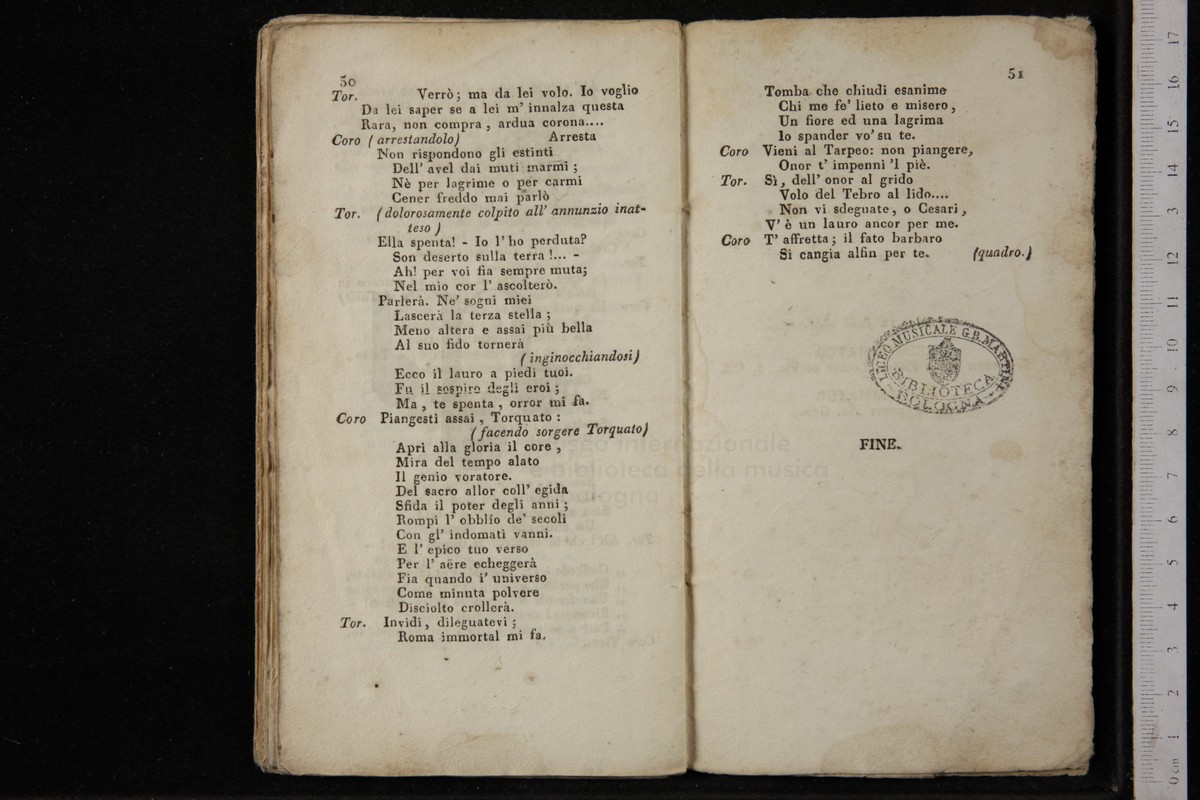 50
Tor. Verrò; ma da lei volo. Io voglio
Da lei saper se a lei m' innalza questa
Rara, non compra, ardua corona....
Coro (arrestandolo) Arresta
Non rispondono gli estinti
Dell' avel dai muti marmi;
Nè per lagrime o per carmi
Cener freddo mai parlò
Tor. (dolorosamente colpito all' annunzio inat-
teso)
Ella spenta! - Io l' ho perduta?
Son deserto sulla terra!... -
Ah! per voi fia sempre muta;
Nel mio cor l' ascolterò.
Parlerà. Ne' sogni miei
Lascerà la terza stella;
Meno altera e assai più bella
Al suo fido tornerà
(inginocchiandosi)
Ecco il lauro a piedi tuoi.
Fu il sospiro degli eroi;
Ma, te spenta, orror mi fa.
Coro Piangesti assai, Torquato:
(facendo sorgere Torquato)
Apri alla gloria il core,
Mira del tempo alato
Il genio voratore.
Del sacro allor coll' egida
Sfida il poter degli anni;
Rompi l' obblio de' secoli
Con gl' indomati vanni.
E l' epico tuo verso
Per l' aëre echeggerà
Fia quando i' universo
Come minuta polvere
Disciolto crollerà.
Tor. Invidi, dileguatevi;
Roma immortal mi fa.
51
Tomba che chiudi esanime
Chi me fe' lieto e misero,
Un fiore ed una lagrima
Io spander vo' su te.
Coro Vieni al Tarpeo: non piangere,
Onor t' impenni 'l piè.
Tor. Sì, dell' onor al grido
Volo del Tebro al lido....
Non vi sdegnate, o Cesari,
V' è un lauro ancor per me.
Coro T' affretta; il fato barbaro
Si cangia alfin per te. (quadro.)
LICEO MUSICALE G.B. MARTINI
BIBLIOTECA
BOLOGNA
FINE.
museo internazionale
e biblioteca della musica
bologna
0 cm 1 2 3 4 5 6 7 8 9 10 11 12 13 14 15 16 17